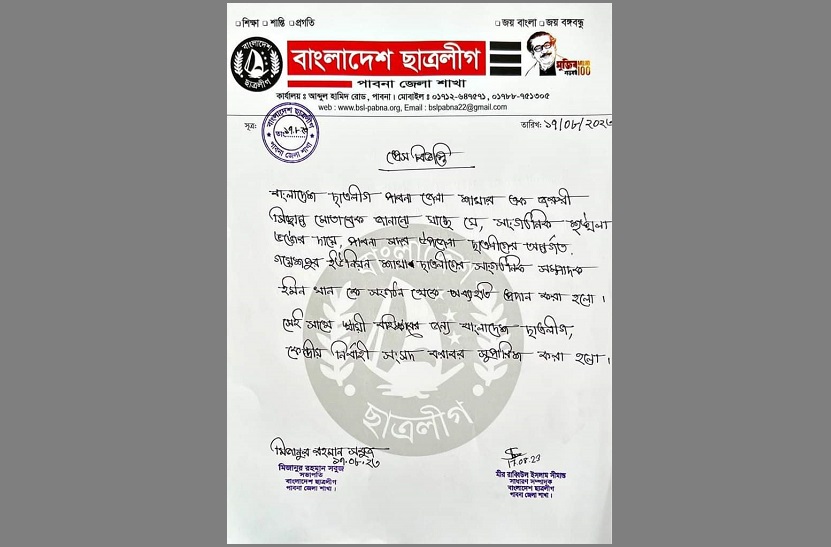 □ শিক্ষা □ শান্তি □ প্রগতি
□ জয় বাংলা □ জয় বঙ্গবন্ধু
বাংলাদেশ ছাত্রলীগ
বাংলাদেশ ছাত্রলীগ
মুজিব
100
পাবনা জেলা শাখা
কার্যালয় : আব্দুল হামিদ রোড, পাবনা। মোবাইল : ০১৭১২-৬৪৭৫৭১, ০১৭৮৮-৭৫১৩০৫
web : www.bsl-pabna.org, Email : bslpabna22@gmail.com
সূত্র:
বাংলাদেশ ছাত্রলীগ
পাবনা জেলা শাখা
তারিখ: ১৭/০৮/২০২৩
প্রেস বিজ্ঞপ্তি
বাংলাদেশ ছাত্রলীগ পাবনা জেলা শাখার এক জরুরী
সিদ্ধান্ত মোতাবেক জানানো যাচ্ছে যে, সাংগঠনিক শৃঙ্খলা
ভঙ্গের দায়ে, পাবনা সদর উপজেলা ছাত্রলীগের অন্তর্গত
গয়েশপুর ইউনিয়ন শাখার ছাত্রলীগের সাংগঠনিক সম্পাদক
ইমন খান কে সংগঠন থেকে অব্যহতি প্রদান করা হলো।
সেই সাথে স্থায়ী বহিষ্কারের জন্য বাংলাদেশ ছাত্রলীগ,
কেন্দ্রীয় নির্বাহী সংসদ বরাবর সুপারিশ করা হলো।
বাংলাদেশ
ছাত্রলীগ
মিজানুর রহমান সবুজ
১৭.০৮.২৩
মিজানুর রহমান সবুজ
সভাপতি
বাংলাদেশ ছাত্রলীগ
পাবনা জেলা শাখা।
17.08.23
মীর রাব্বিউল ইসলাম সীমান্ত
সাধারণ সম্পাদক
বাংলাদেশ ছাত্রলীগ
পাবনা জেলা শাখা।